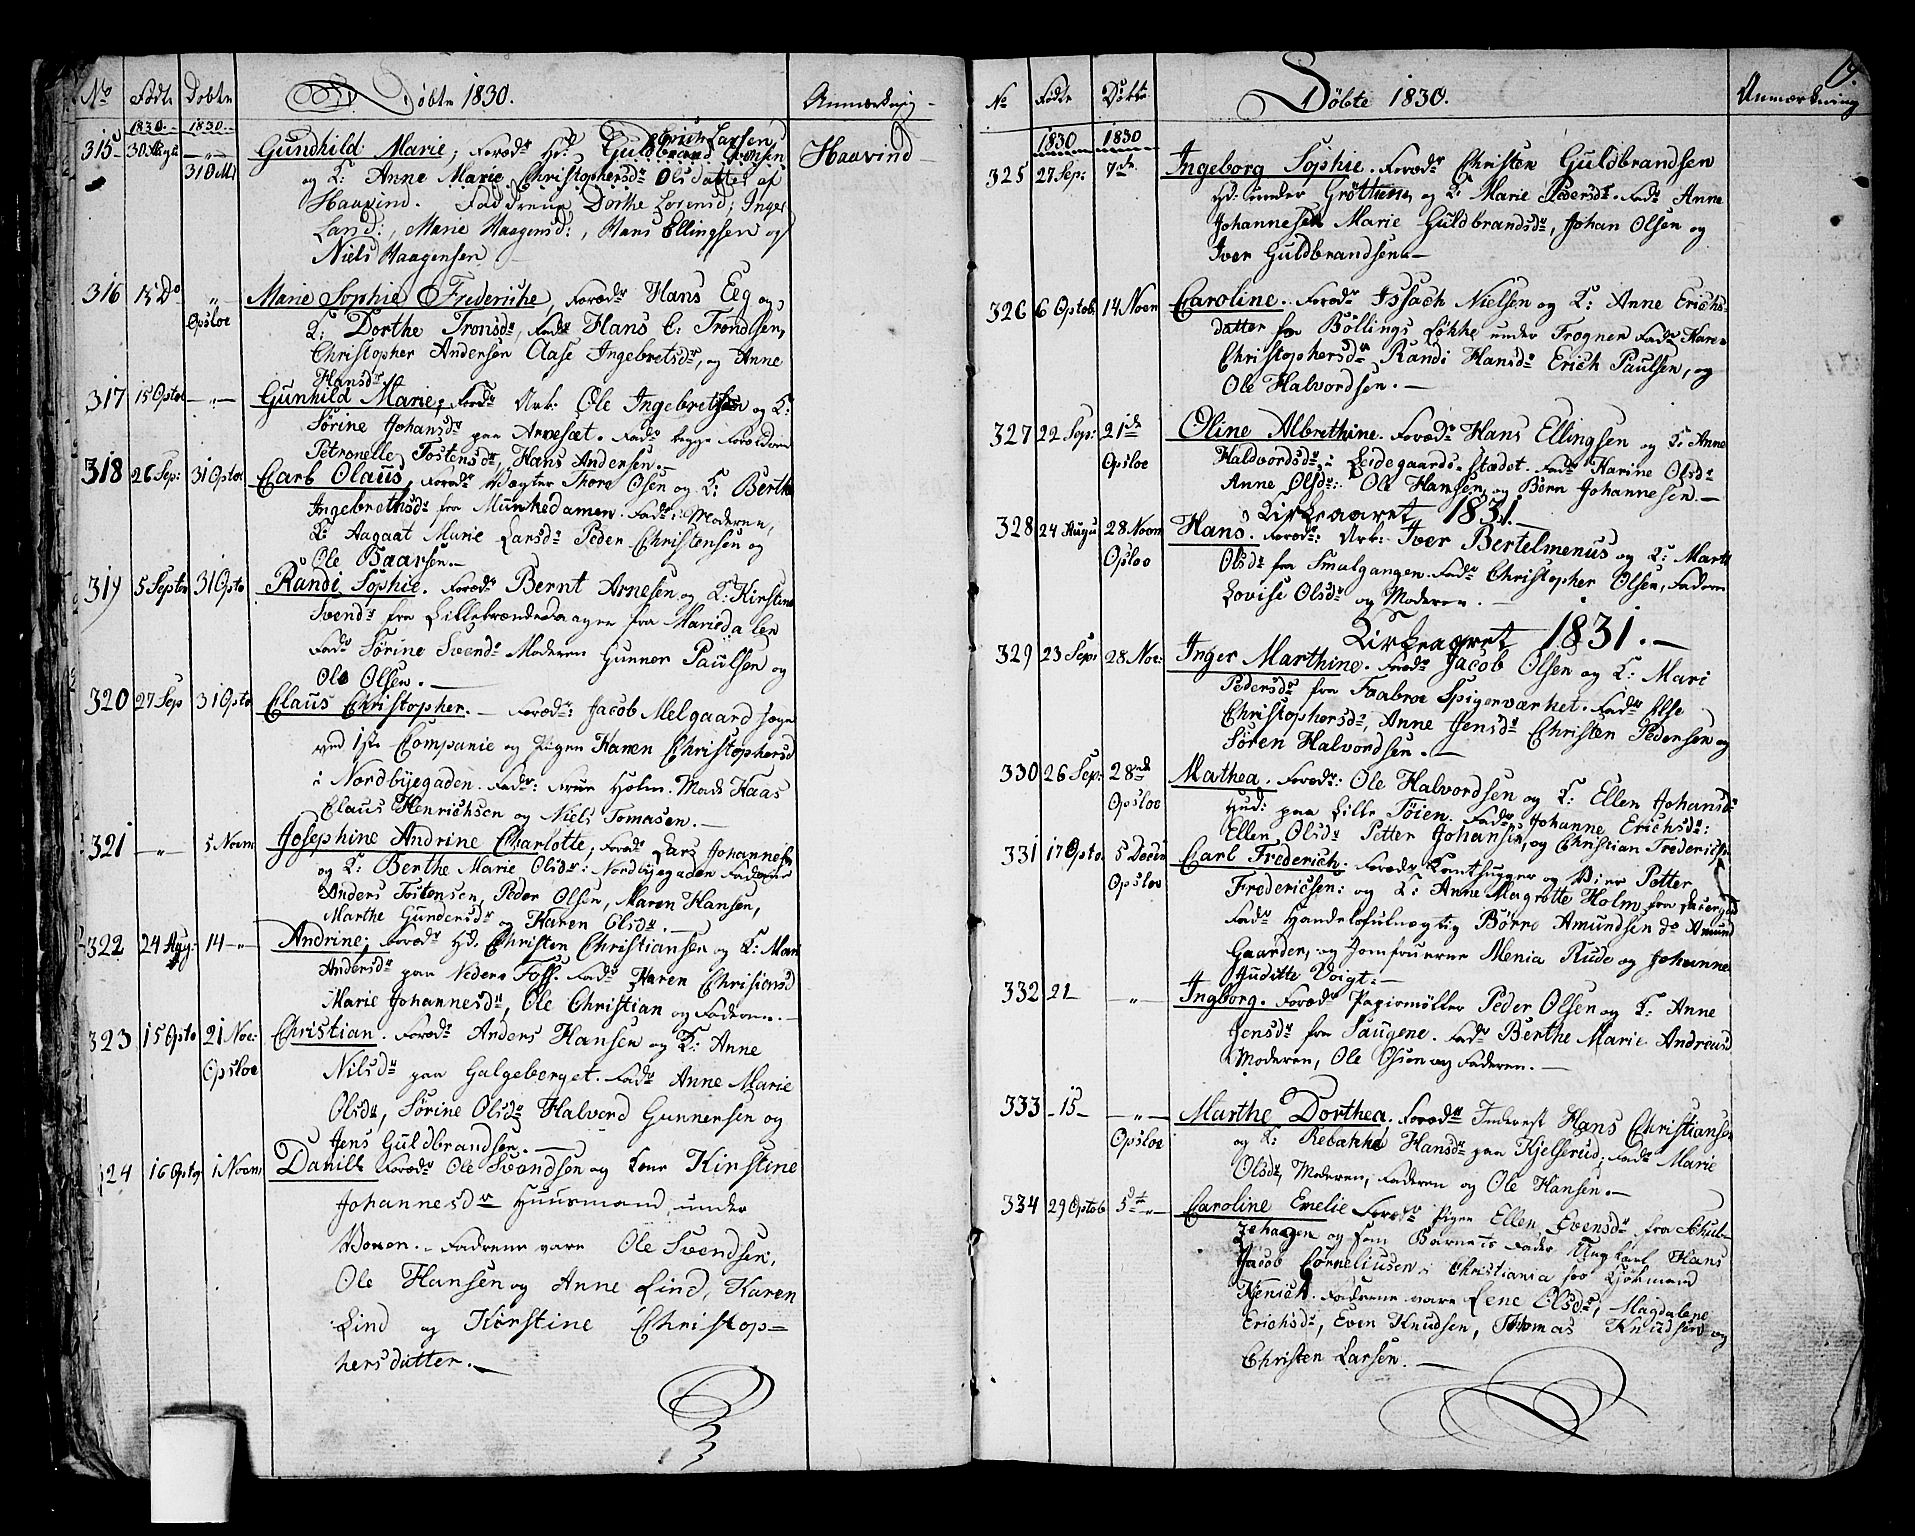 No Födte Döbte Döbte 1830. Anmærkning
1830. 1830.
315 30 Augu 31 O Erich Larsen
Gundhild Marie, Foræd: Hd: Guldbrand Haavind
og K: Anne Marie Christophersd: Olsdatter af
Haavind. Faddrene Dorthe Lorensd: Inger
Land:, Marie Haagensd:, Hans Ellingsen og
Niels Haagensen
316 15 Do " Marie Sophie Frederiche, Foræd: Hans Eeg og
Opsloe K: Dorthe Tronsd:, Fad: Hans C: Trondsen,
Christopher Andersen Aase Ingebretsd:, og Anne
Hansd:
317 15 Optob — " — Gunhild Marie, Foræd: Arb: Ole Ingebretsen og K:
Sørine Johansd: paa Arvesæt. Fad: begge Foreldrene
Petronelle Tostensd:, Hans Andersen.
318 26 Sep: 31 Optob Carl Olaus, Foræd: Vægter Thore Olsen og K: Berthe
Ingebrethsd: fra Munkedamen. Fad: Moderen,
K: Aagaat Marie Larsd: Peder Christensen og
Ole Baarsen.
319 5 Septbr 31 Optob Randi Sophie. Foræd: Bernt Arnesen og K: Kirstine
Svend: fra Lillebrændedaagen fra Mariedalen
Fad: Sørine Svend: Moderen Gunner Paulsen og
Ole Olsen. —
320 27 Sep 31 Optob Claus Christopher. — Foræd: Jacob Melgaard
ved 1ste Companie og Pigen Karen Christophersd
i Nordbyegaden. Fad: Frue Holm. Mads Haas
Claus Henrichsen og Niels Tomasen. —
321 — " — 5 Novm Josephine Andrine Charlotte, Foræd: Lars Johannesen
og K: Berthe Marie Olsd: Nordbyegaden Faddere
Anders Tostensen, Peder Olsen, Maren Hansen,
Marthe Gundersd: og Karen Olsd:
322 24 Aug: 14 — " Andrine, Foræd: Hd. Christen Christiansen og K: Mari
Andersd: paa Nedere Foss. Fad: Karen Chrisiansd
Marie Johannesd:, Ole Christian og Faderen. —
323 15 Opto 21 Nov: Christian. Foræd: Anders Hansen og K: Anne
Opsloe Nilsd: paa Galgeberget. Fad: Anne Marie
Olsd:, Sørine Olsd: Halvord Gunnersen og
Jens Guldbrandsen. —
324 16 Optob 1 Novm Danill Foræd: Ole Svendsen og Kone Kirstine
Johannesd: Huusmand under
Fadrene vare Ole Svendsen,
Ole Hansen og Anne Lind, Karen
Lind og Kirstine Christop-
hersdatter. —
19.
No Födte Döbte Döbte 1830. Anmærkning
1830 1830
325 27 Sep: 7de Ingeborg Sophie. Foræd: Christen Guldbrandsen
Hd: under Gröttum og K: Marie Pedersd: Fad: Anne
Johannesen Marie Guldbrandsd:, Johan Olsen og
Iver Guldbrandsen. —
326 6 Optob 14 Novm Caroline. Foræd: Issach Nielsen og K: Anne Erichs-
datter fra Böllings Løkke under Frogner Fad: Karen
Christophersd: Randi Hansd: Erich Paulsen, og
Ole Halvordsen. —
327 22 Sep: 21de Oline Albrethine. Foræd: Hans Ellingsen og K: Anne
Opsloe Haldvordsd: i Leidegaards-Stædet. Fad: Karine Olsd:
Anne Olsd: Ole Hansen og Börn Johannesen. —
Kirkeaaret 1831. —
328 24 Augu 28 Novm Hans. Foræd: Arb: Iver Bertelmenus og K: Marth
Opsloe Olsd: fra Smalgangen. Fad: Christopher Olsen, Faderen
Lovise Olsd: og Moderen. —
Kirkeaaret 1831. —
329 23 Sep: 28 Nov: Inger Marthine. Foræd: Jacob Olsen og K: Mari
Pedersd: fra Faabroe Spigerværket. Fad: Else
Christophersd:, Anne Jensd: Christen Pedersen og
Søren Halvordsen. —
330 26 Sep: 28nd Mathea. Foræd: Ole Halvordsen og K: Ellen Johansd:
Opsloe Hud: paa Lille Töien. Fad: Johanne Erichsd:
Ellen Olsd: Petter Johansen, og Christian Frederichsen
331 17 Opto 5 Decm Carl Frederich. Foræd: og Petter
Opsloe Fredericsen: og K: Anne Magrette Holm fra
Fad: Handelsfulmægtig Börre Amundsen do Amund
Gaarder, og Jomfruerne Menia Rude og Johanne
Juditte Voigt. —
332 21 — — " — Ingborg. Foræd: Papiermöller Peder Olsen og K: Anne
Jensd: fra Saugene. Fad: Berthe Marie Andreasd
Moderen, Ole Olsen og Faderen. —
333 - 15 - — " — Marthe Dorthea. Foræd: Inderst Hans Christiansen
Opsloe og K: Rebakka Hansd: paa Kjelserud, Fad: Marie
Olsd:, Moderen, Faderen og Ole Hansen. —
334 29 Optob 5te " Caroline Emelie Foræd: Pigen Ellen Evensd: fra Schul-
zehagen og som Barnets Fader Ungkarl Hans
Jacob Corneliusen i Christiania hos
Fadrene vare Lene Olsd:, Magdalene
Erichsd:, Even Knudsen, Thomas Knudsen og
Christen Larsen. —